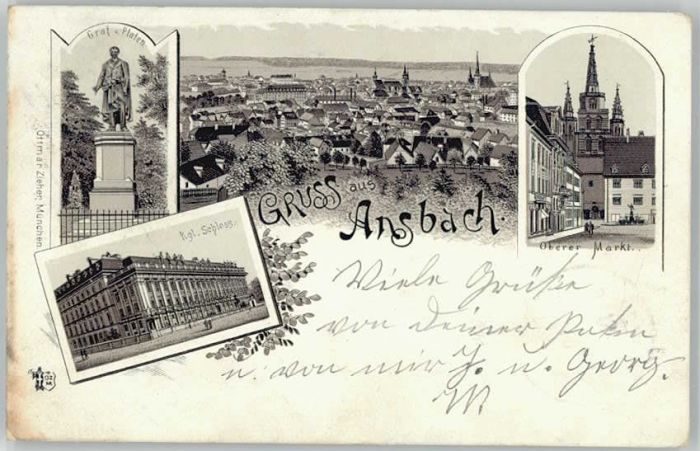 Graf v. Platen
Ottmar Zieher, München
GRUSS aus
Ansbach.
Oberer Markt.
Kgl. Schloss.
Viele Grüße
von deiner
u. von mir J. u. Georg.